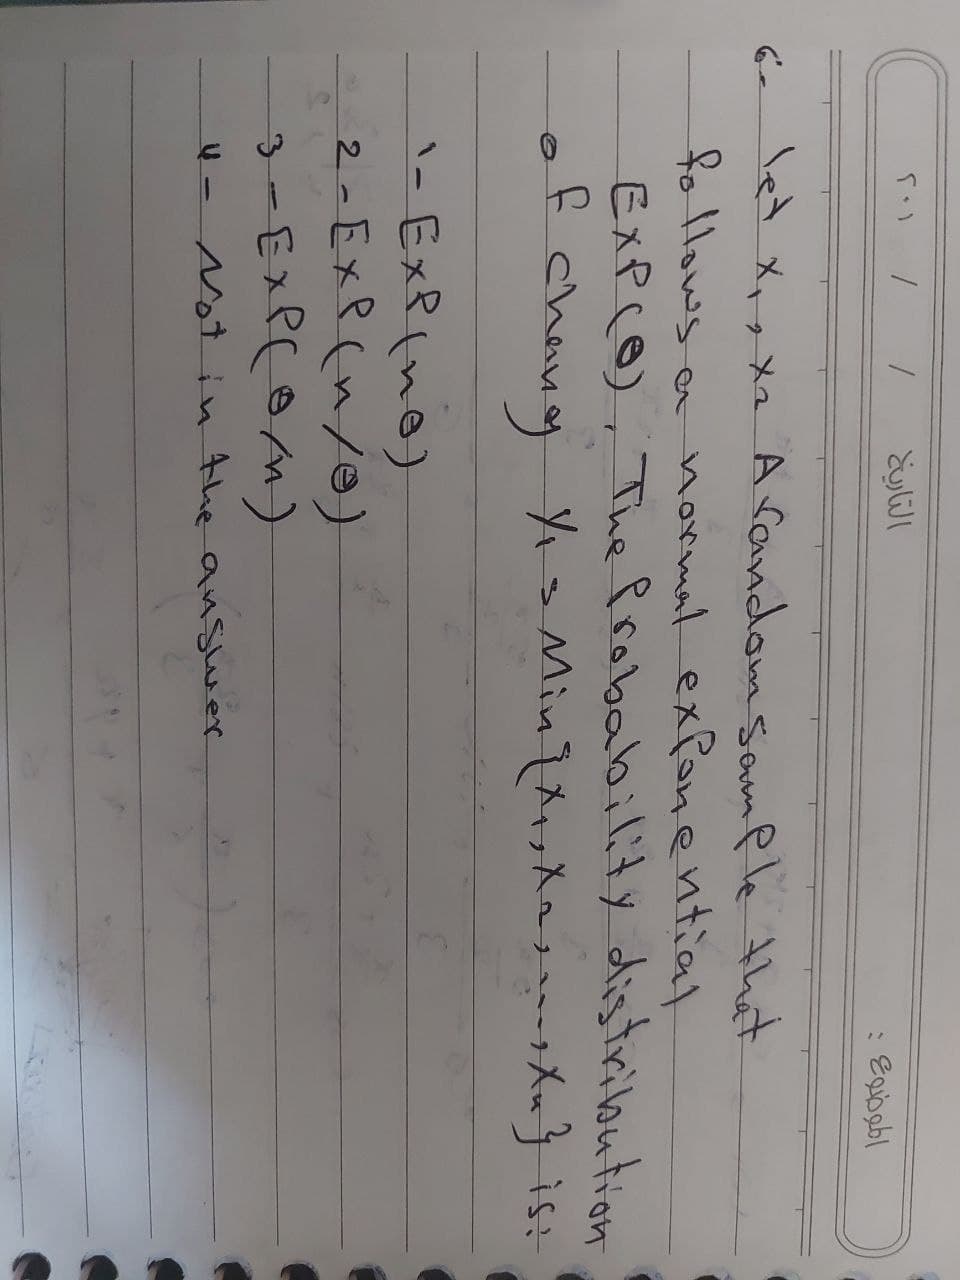 الموضوع :
التاريخ / / ٢٠١
6- let x₁, x₂ A random sample that
follows a normal exponential
EXP(θ), The Probability distribution
of Chang Y₁ = Min{x₁, x₂, ---, xₙ} is:
1- EXP(nθ)
2- EXP(n/θ)
3- EXP(θ/n)
4- Not in the answer